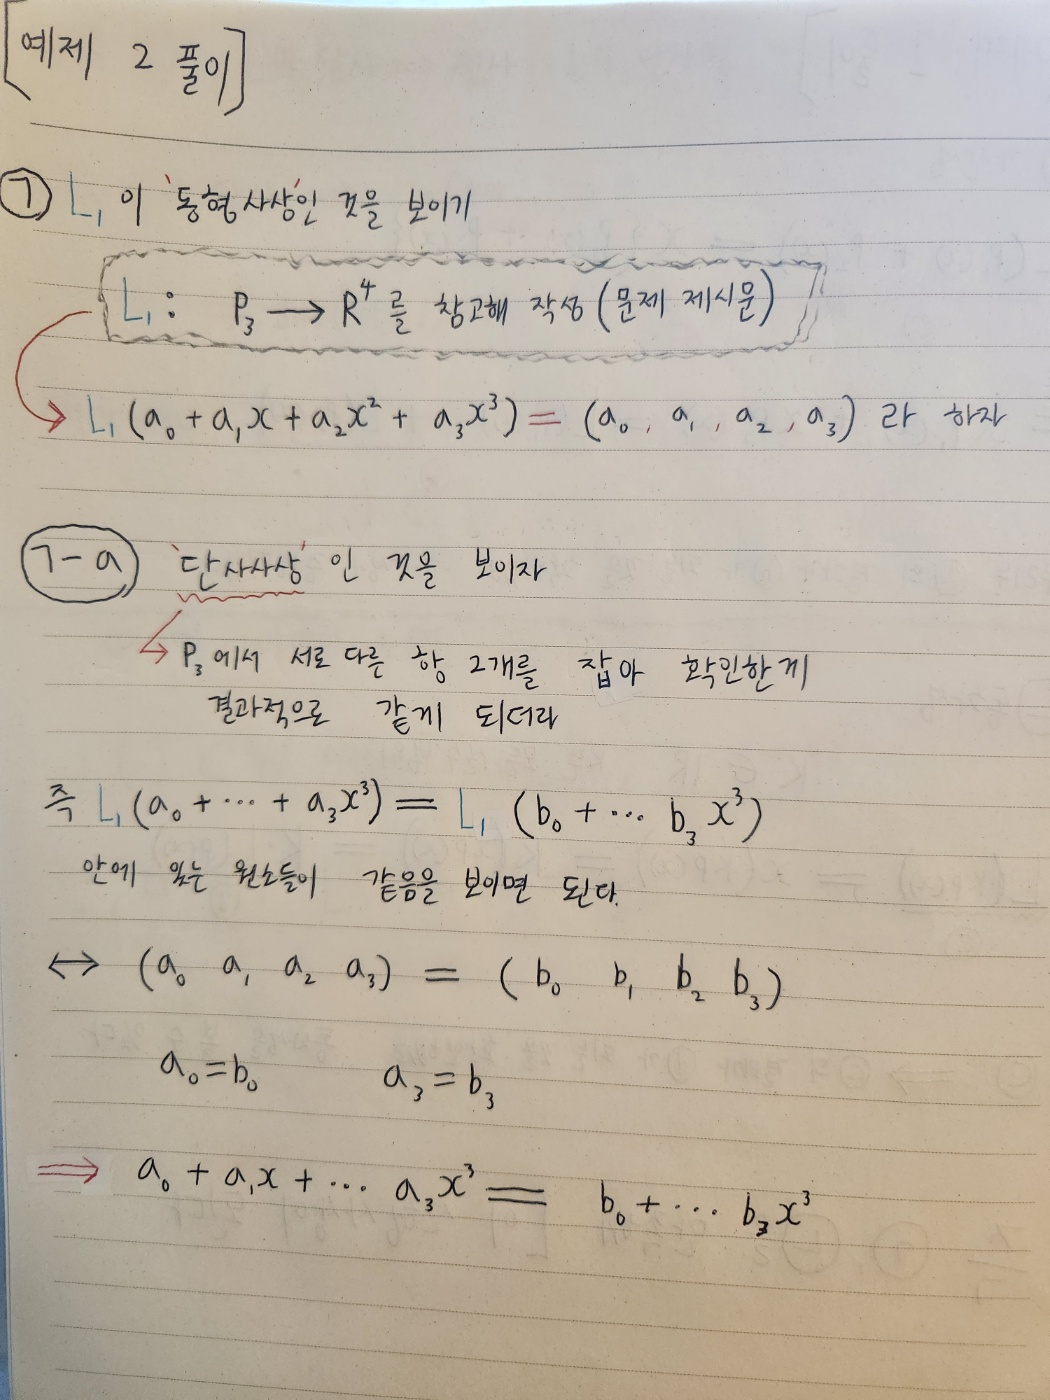 [예제 2 풀이]
ㄱ L₁이 '동형사상'인 것을 보이기
L₁: P₃ → R⁴를 참고해 작성 (문제 제시문)
→ L₁(a₀ + a₁x + a₂x² + a₃x³) = (a₀, a₁, a₂, a₃) 라 하자
ㄱ-a '단사사상' 인 것을 보이자
→ P₃에서 서로 다른 항 2개를 잡아 확인한게
결과적으로 같게 되더라
즉 L₁(a₀ + ... + a₃x³) = L₁ (b₀ + ... b₃x³)
안에 있는 원소들이 같음을 보이면 된다.
↔ (a₀ a₁ a₂ a₃) = (b₀ b₁ b₂ b₃)
a₀=b₀ a₃=b₃
⇒ a₀ + a₁x + ... a₃x³ = b₀ + ... b₃x³